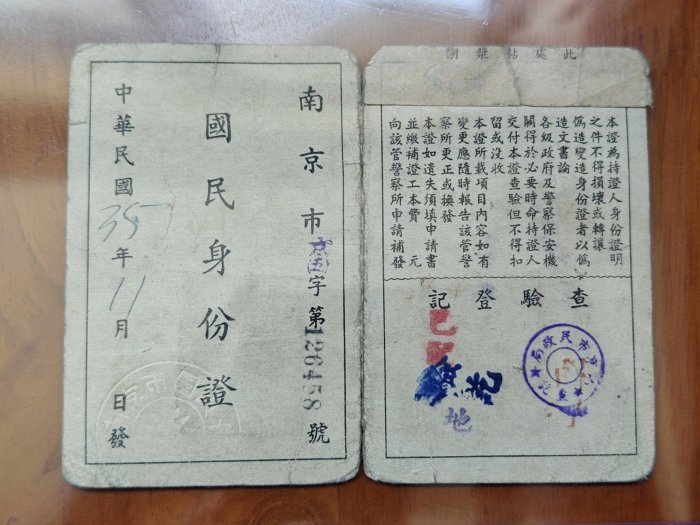 南京市京伍字第126458號
國民身份證
中華民國35年11月 日發
此處粘漿糊
本證為持證人身份證明
之件不得損壞或轉讓
偽造變造身份證者以偽
造文書論
各級政府及警察保安機
關得於必要時命持證人
交付本證查驗但不得扣
留或沒收
本證所載項目內容如有
變更應隨時報告該管警
察所更正或換發
本證如遺失須填申請書
並繳補證工本費 元
向該管警察所申請補發
查驗登記
市民政局
地